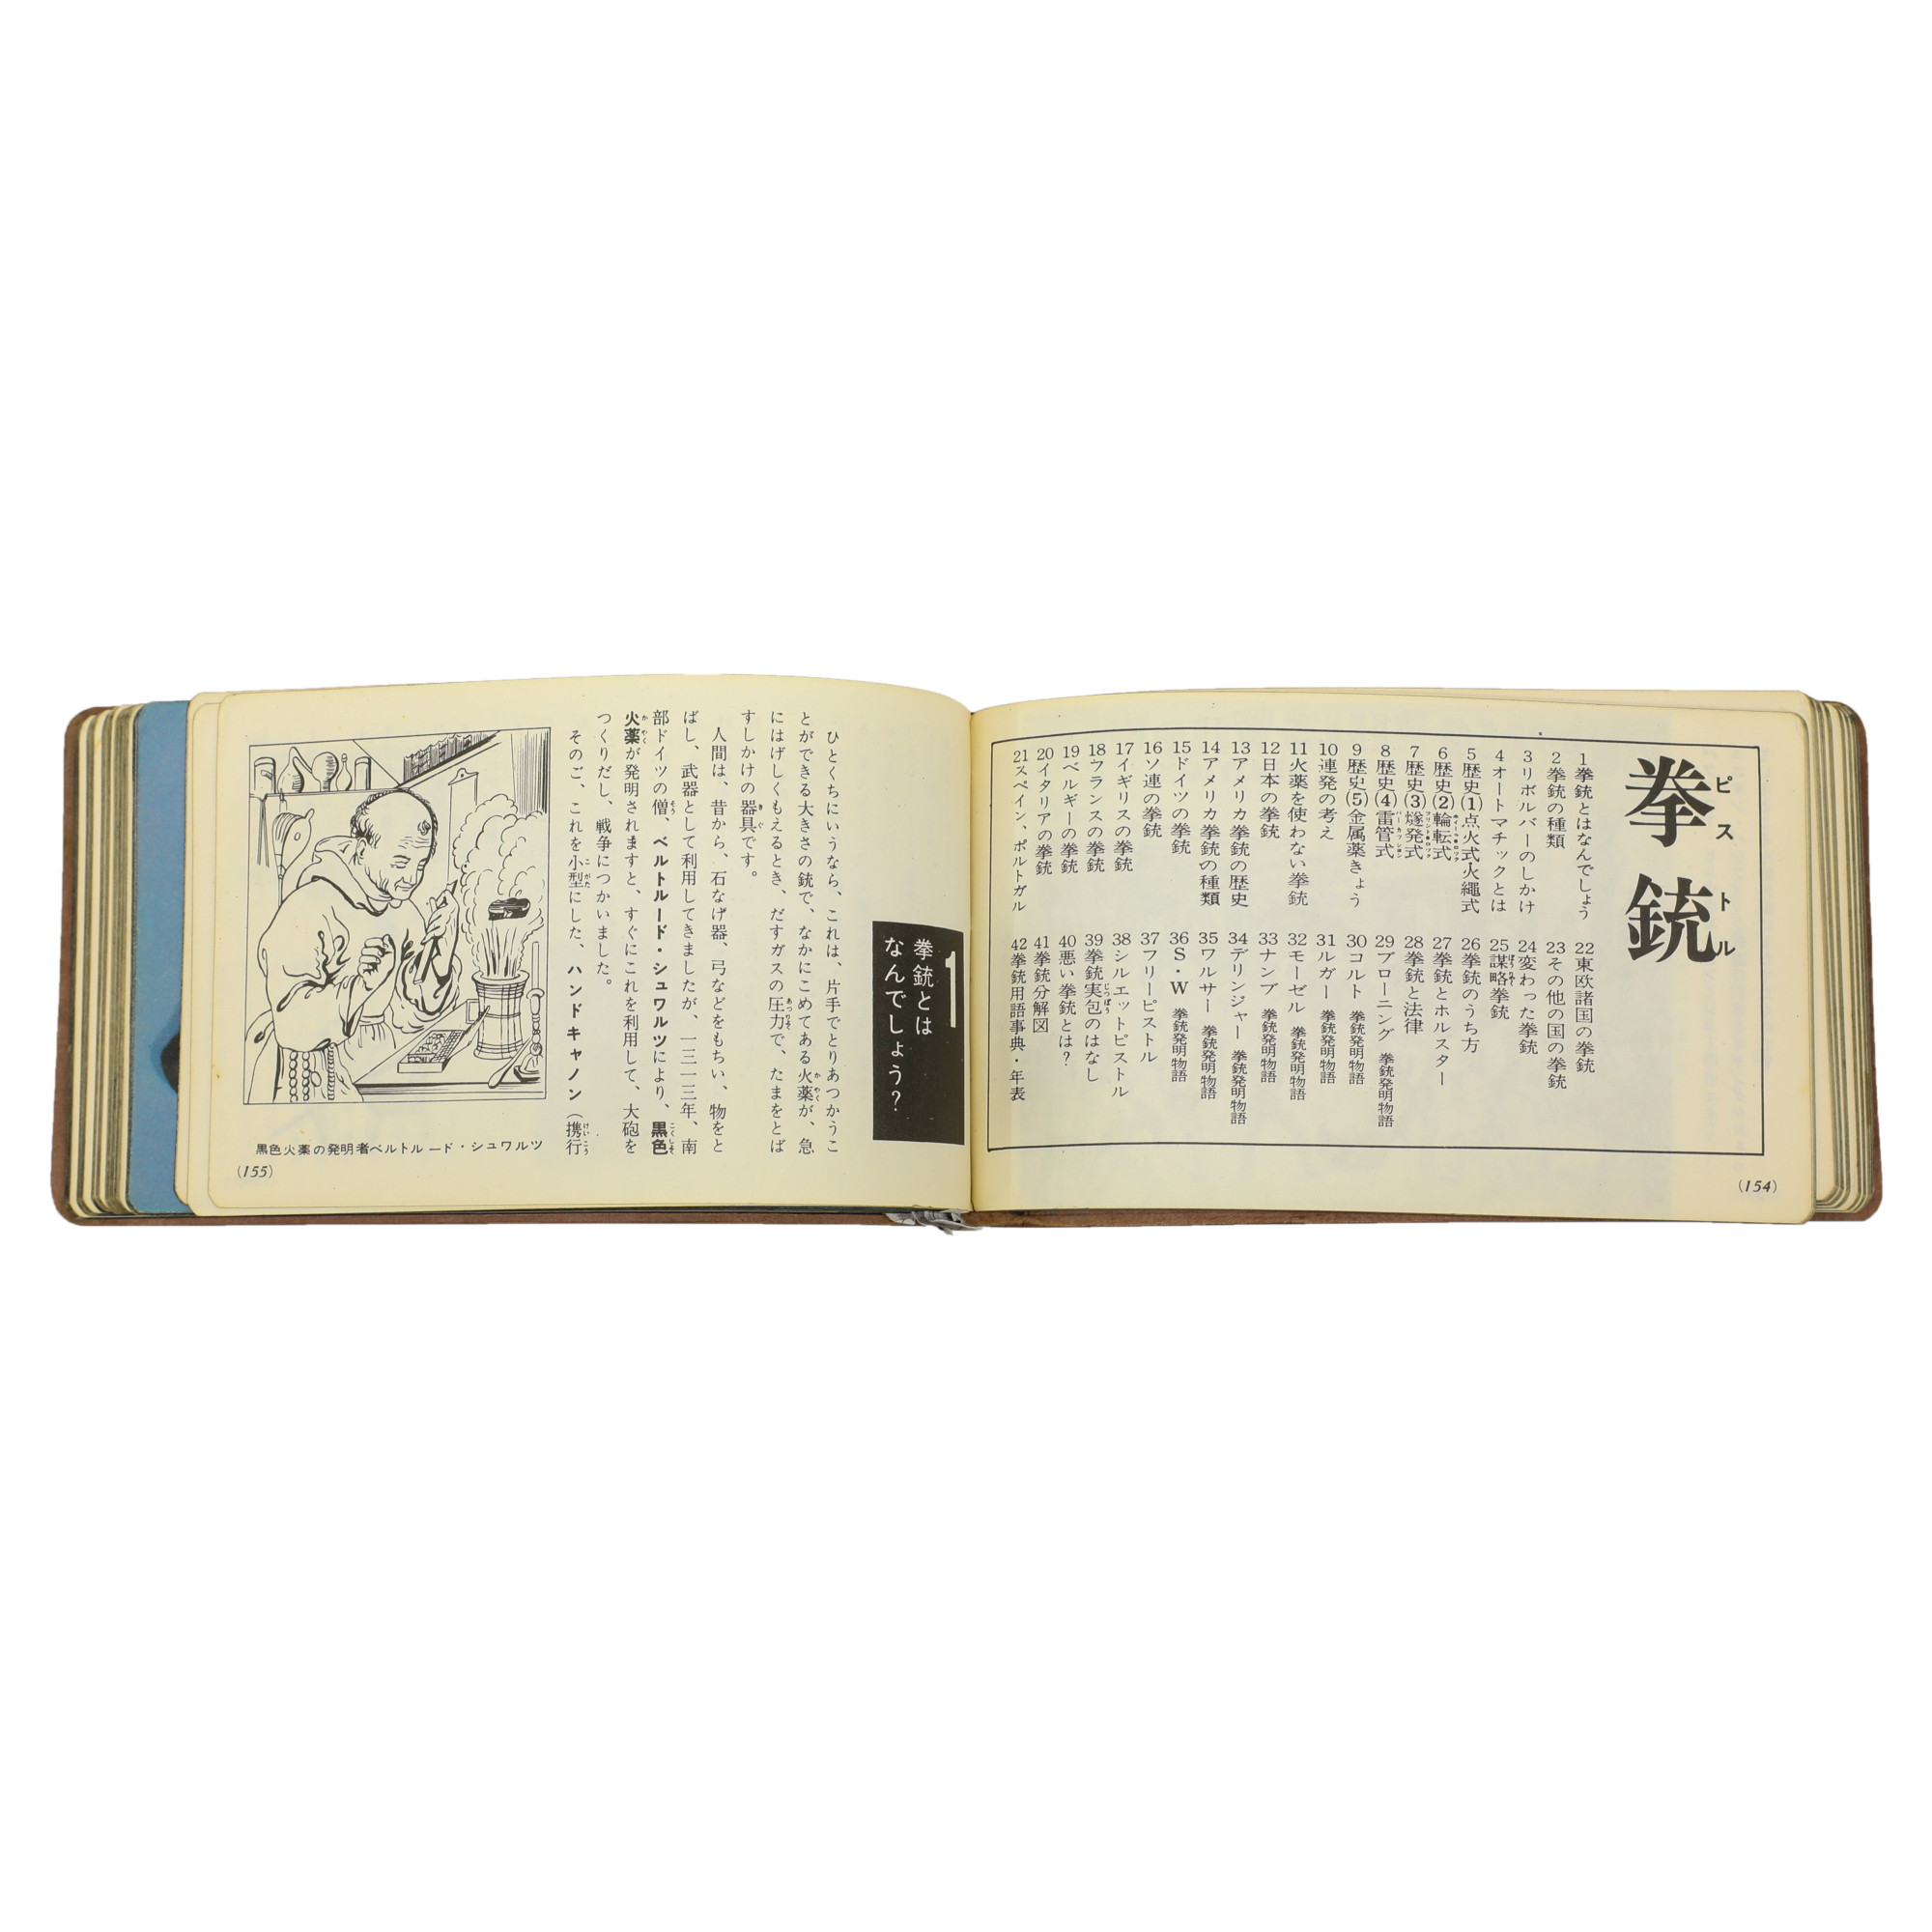 拳銃
ピストル
1拳銃とはなんでしょう
2拳銃の種類
3リボルバーのしかけ
4オートマチックとは
5歴史(1)点火式・火繩式
6歴史(2)輪転式
7歴史(3)燧発式
8歴史(4)雷管式
9歴史(5)金属薬きょう
10連発の考え
11火薬を使わない拳銃
12日本の拳銃
13アメリカ拳銃の歴史
14アメリカ拳銃の種類
15ドイツの拳銃
16ソ連の拳銃
17イギリスの拳銃
18フランスの拳銃
19ベルギーの拳銃
20イタリアの拳銃
21スペイン、ポルトガル
22東欧諸国の拳銃
23その他の国の拳銃
24変わった拳銃
25謀略拳銃
26拳銃のうち方
27拳銃とホルスター
28拳銃と法律
29ブローニング 拳銃発明物語
30コルト 拳銃発明物語
31ルガー 拳銃発明物語
32モーゼル 拳銃発明物語
33ナンブ 拳銃発明物語
34デリンジャー 拳銃発明物語
35ワルサー 拳銃発明物語
36S・W 拳銃発明物語
37フリーピストル
38シルエットピストル
39拳銃実包のはなし
40悪い拳銃とは?
41拳銃分解図
42拳銃用語事典・年表
(154)
1
拳銃とは
なんでしょう?
ひとくちにいうなら、これは、片手でとりあつかうこ
とができる大きさの銃で、なかにこめてある火薬が、急
にはげしくもえるとき、だすガスの圧力で、たまをとば
すしかけの器具です。
人間は、昔から、石なげ器、弓などをもちい、物をと
ばし、武器として利用してきましたが、一三一三年、南
部ドイツの僧、ベルトルード・シュワルツにより、黒色
火薬が発明されますと、すぐにこれを利用して、大砲を
つくりだし、戦争につかいました。
そのご、これを小型にした、ハンドキャノン(携行
黒色火薬の発明者ベルトルード・シュワルツ
(155)